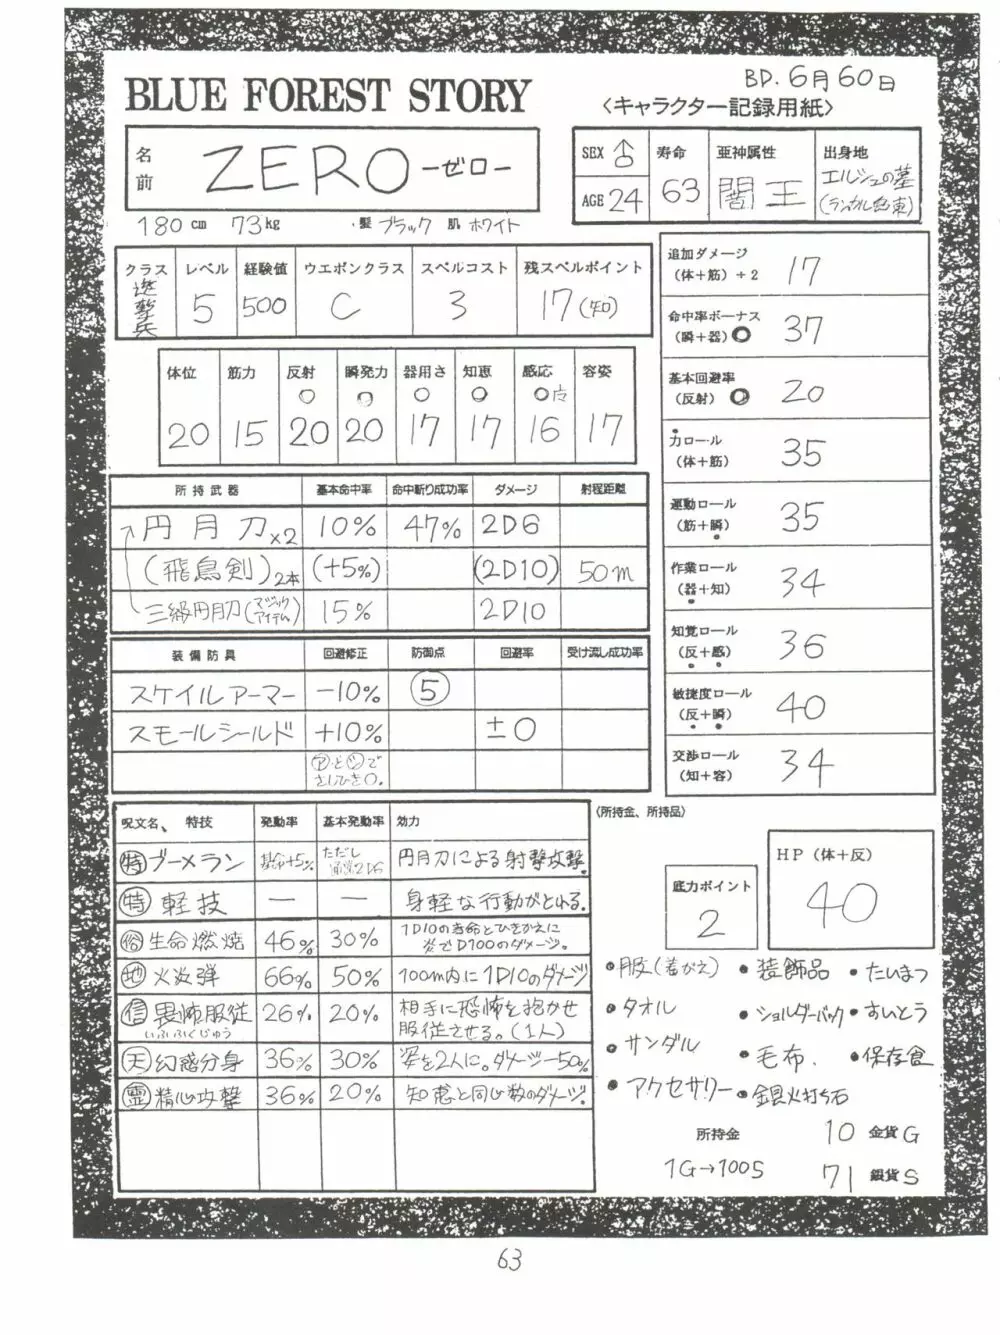 BD. 6月60日
BLUE FOREST STORY
〈キャラクター記録用紙〉
名前 ZERO —ゼロ—
SEX ♂
AGE 24
寿命 63
亜神属性 闇王
出身地 エルシュの墓
180cm 73kg ・髪 ブラック 肌 ホワイト
クラス 遊撃兵
レベル 5
経験値 500
ウエポンクラス C
スペルコスト 3
残スペルポイント 17(知)
体位 20
筋力 15
反射 20
瞬発力 20
器用さ 17
知恵 17
感応 16
容姿 17
追加ダメージ (体+筋)÷2 17
命中率ボーナス (瞬+器) 37
基本回避率 (反射) 20
力ロール (体+筋) 35
運動ロール (筋+瞬) 35
作業ロール (器+知) 34
知覚ロール (反+感) 36
敏捷度ロール (反+瞬) 40
交渉ロール (知+容) 34
所持武器 基本命中率 命中斬り成功率 ダメージ 射程距離
円月刀×2 10% 47% 2D6
(飛鳥剣)2本 (+5%) (2D10) 50m
三級円月刀(マジックアイテム) 15% 2D10
装備防具 回避修正 防御点 回避率 受け流し成功率
スケイルアーマー −10% ⑤
スモールシールド +10% ±0
㋐と㋛でさしひき0.
呪文名、特技 発動率 基本発動率 効力
㊕ブーメラン 基命+5% ただし通常2D6 円月刀による射撃攻撃.
㊕軽技 — — 身軽な行動がとれる.
俗 生命燃焼 46% 30% 1D10の寿命とひきかえに炎でD100のダメージ。
地 火炎弾 66% 50% 100m内に1D10のダメージ
信 畏怖服従 いふふくじゅう 26% 20% 相手に恐怖を抱かせ服従させる。(1人)
天 幻惑分身 36% 30% 姿を2人に。ダメージ−50%
霊 精心攻撃 36% 20% 知恵と同じ数のダメージ.
(所持金、所持品)
底力ポイント 2
HP(体+反) 40
・服(着がえ) ・装飾品 ・たいまつ
・タオル ・ショルダーバック ・すいとう
・サンダル ・毛布. ・保存食
・アクセサリー ・銀具火打ち石
所持金 10 金貨G
1G→100S 71 銀貨S
63